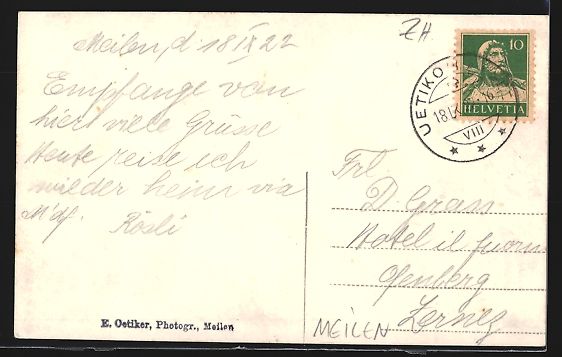 Meilen, d 18 IX 22
Empfange von
hier viele Grüsse
Heute reise ich
wieder heim via
M'df. Rösli
ZH
10
HELVETIA
UETIKO
18 IX
VIII
Frl
D. Grass
Hotel il fuorn
Ofenberg
Zernez
E. Oetiker, Photogr., Meilen
MEILEN